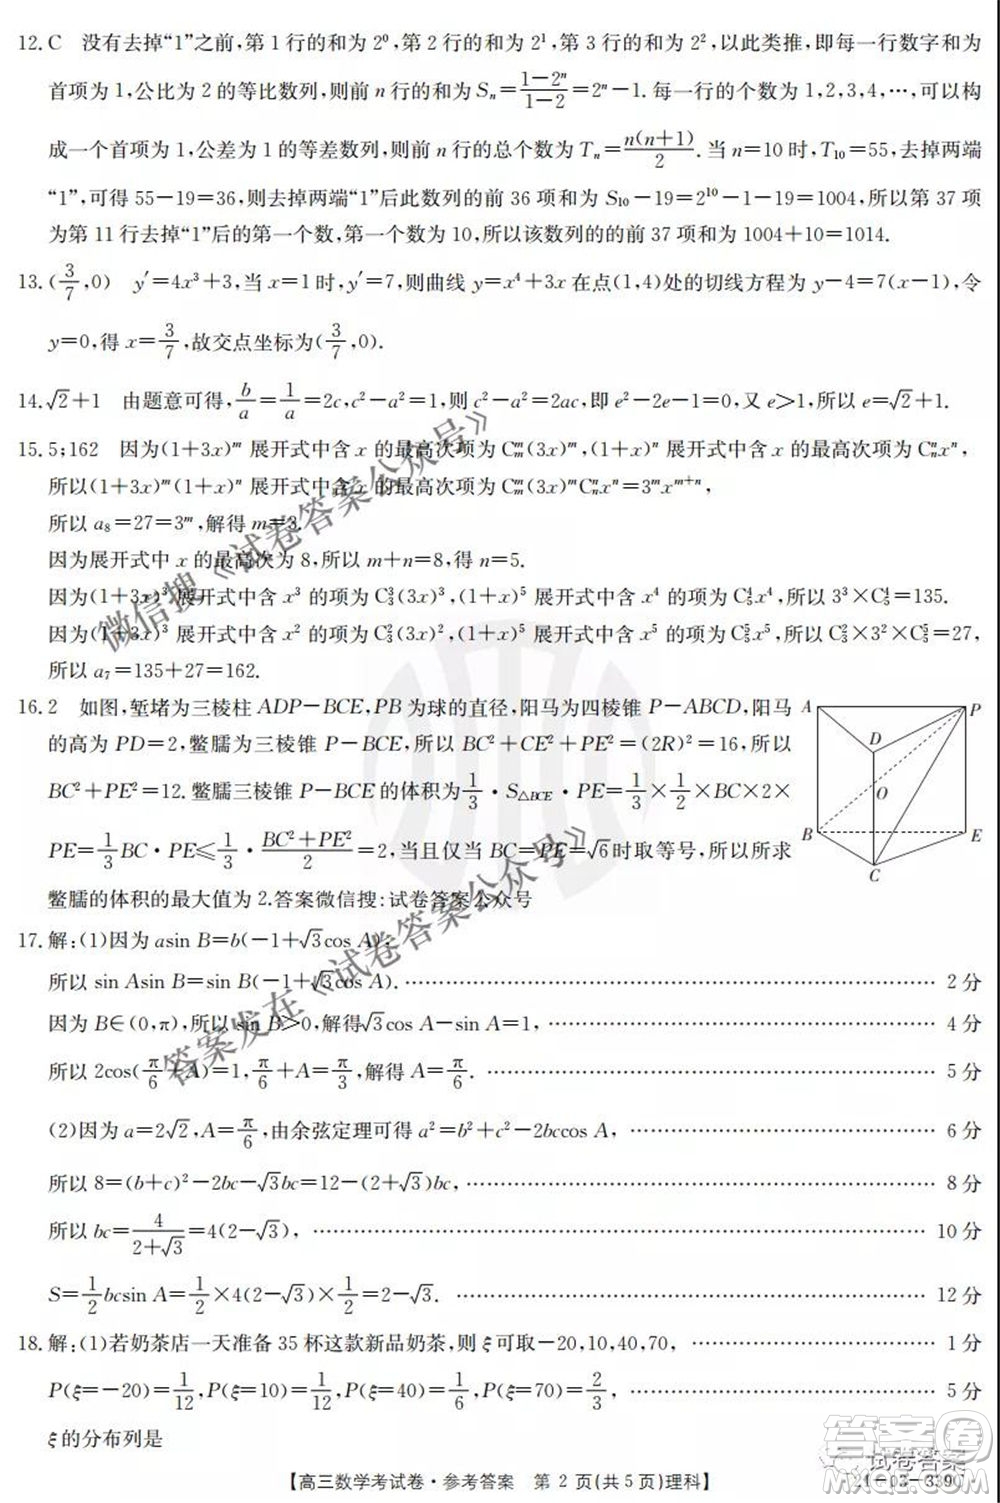 12. C 没有去掉“1”之前,第 1 行的和为 2⁰,第 2 行的和为 2¹,第 3 行的和为 2²,以此类推,即每一行数字和为
首项为 1,公比为 2 的等比数列,则前 n 行的和为 Sₙ=(1−2ⁿ)/(1−2)=2ⁿ−1. 每一行的个数为 1,2,3,4,…,可以构
成一个首项为 1,公差为 1 的等差数列,则前 n 行的总个数为 Tₙ=n(n+1)/2. 当 n=10 时,T₁₀=55,去掉两端
“1”,可得 55−19=36,则去掉两端“1”后此数列的前 36 项和为 S₁₀−19=2¹⁰−1−19=1004,所以第 37 项
为第 11 行去掉“1”后的第一个数,第一个数为 10,所以该数列的的前 37 项和为 1004+10=1014.
13. (3/7,0) y′=4x³+3,当 x=1 时,y′=7,则曲线 y=x⁴+3x 在点(1,4)处的切线方程为 y−4=7(x−1),令
y=0,得 x=3/7,故交点坐标为(3/7,0).
14. √2+1 由题意可得,b/a=1/a=2c,c²−a²=1,则 c²−a²=2ac,即 e²−2e−1=0,又 e>1,所以 e=√2+1.
15. 5;162 因为(1+3x)ᵐ 展开式中含 x 的最高次项为 Cₘᵐ(3x)ᵐ,(1+x)ⁿ 展开式中含 x 的最高次项为 Cₙⁿxⁿ,
所以(1+3x)ᵐ(1+x)ⁿ 展开式中含 x 的最高次项为 Cₘᵐ(3x)ᵐCₙⁿxⁿ=3ᵐxᵐ⁺ⁿ,
所以 a₈=27=3ᵐ,解得 m=3.
因为展开式中 x 的最高次为 8,所以 m+n=8,得 n=5.
因为(1+3x)³ 展开式中含 x³ 的项为 C₃³(3x)³,(1+x)⁵ 展开式中含 x⁴ 的项为 C₅⁴x⁴,所以 3³×C₅⁴=135.
因为(1+3x)³ 展开式中含 x² 的项为 C₃²(3x)²,(1+x)⁵ 展开式中含 x⁵ 的项为 C₅⁵x⁵,所以 C₃²×3²×C₅⁵=27,
所以 a₇=135+27=162.
16. 2 如图,堑堵为三棱柱 ADP−BCE,PB 为球的直径,阳马为四棱锥 P−ABCD,阳马
的高为 PD=2,鳖臑为三棱锥 P−BCE,所以 BC²+CE²+PE²=(2R)²=16,所以
BC²+PE²=12. 鳖臑三棱锥 P−BCE 的体积为 1/3·S△BCE·PE=1/3×1/2×BC×2×
PE=1/3BC·PE≤1/3·(BC²+PE²)/2=2,当且仅当 BC=PE=√6时取等号,所以所求
鳖臑的体积的最大值为 2.答案微信搜:试卷答案公众号
A
P
D
O
B
E
C
17. 解:(1)因为 asin B=b(−1+√3cos A),
所以 sin Asin B=sin B(−1+√3cos A). …… 2 分
因为 B∈(0,π),所以 sin B>0,解得√3cos A−sin A=1, …… 4 分
所以 2cos(π/6+A)=1,π/6+A=π/3,解得 A=π/6. …… 5 分
(2)因为 a=2√2,A=π/6,由余弦定理可得 a²=b²+c²−2bccos A, …… 6 分
所以 8=(b+c)²−2bc−√3bc=12−(2+√3)bc, …… 8 分
所以 bc=4/(2+√3)=4(2−√3), …… 10 分
S=1/2bcsin A=1/2×4(2−√3)×1/2=2−√3. …… 12 分
18. 解:(1)若奶茶店一天准备 35 杯这款新品奶茶,则 ξ 可取−20,10,40,70, …… 1 分
P(ξ=−20)=1/12,P(ξ=10)=1/12,P(ξ=40)=1/6,P(ξ=70)=2/3, …… 5 分
ξ 的分布列是
【高三数学考试卷·参考答案 第 2 页(共 5 页)理科】
21-03-339C
微信搜《试卷答案公众号》
答案发在《试卷答案公众号》
试卷答案